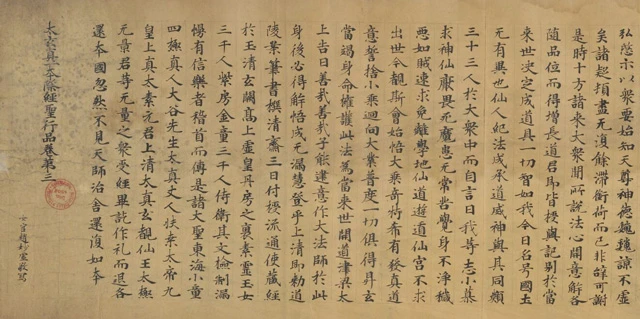 弘慈示以衆要始知天尊神德巍巍諒不虛
矣諸趍煩盡无復餘滯衒荷而已非辝可謝
是時十方諸來大衆聞所說法心開意解各
隨品位而得增長道君即皆授與記別於當
来世決定成道具一切智如我今日名号國土
无有異也仙人紀法成承道威神與其同類
三十三人於大衆中而自言曰我等志小
求神仙厭畏死魔患无常苦覺身不淨穢
惡如賊速求免離學地仙道遊仙宮不求
出世今覩斯會始悟大乘奇特希有發真道
意誓捨小乘迴向大乘普度一切俱得昇玄
當竭身命擁護此法為當来世開道津梁太
上告曰善哉善哉子能建意作大法師於此
身後必得解悟成无漏慧登乎上清即勑道
陵筆書撰清齋三日付授流通使藏經
於玉清玄闕高上虛皇丹房之裏素靈玉女
三千人紫房金童三千人侍衛其文撿制漏
慢有信樂者稽首而傳是諸大聖東海小童
四極真人大谷先生太真丈人扶桒太帝九
皇上真太素元君上清太真玄覩仙王太極
元景君等无量之衆受經畢訖作礼而退各
還本國忽然不見天師治舍還復如本
太玄真一本際經聖行品卷第三
女官趙妙虛敬寫